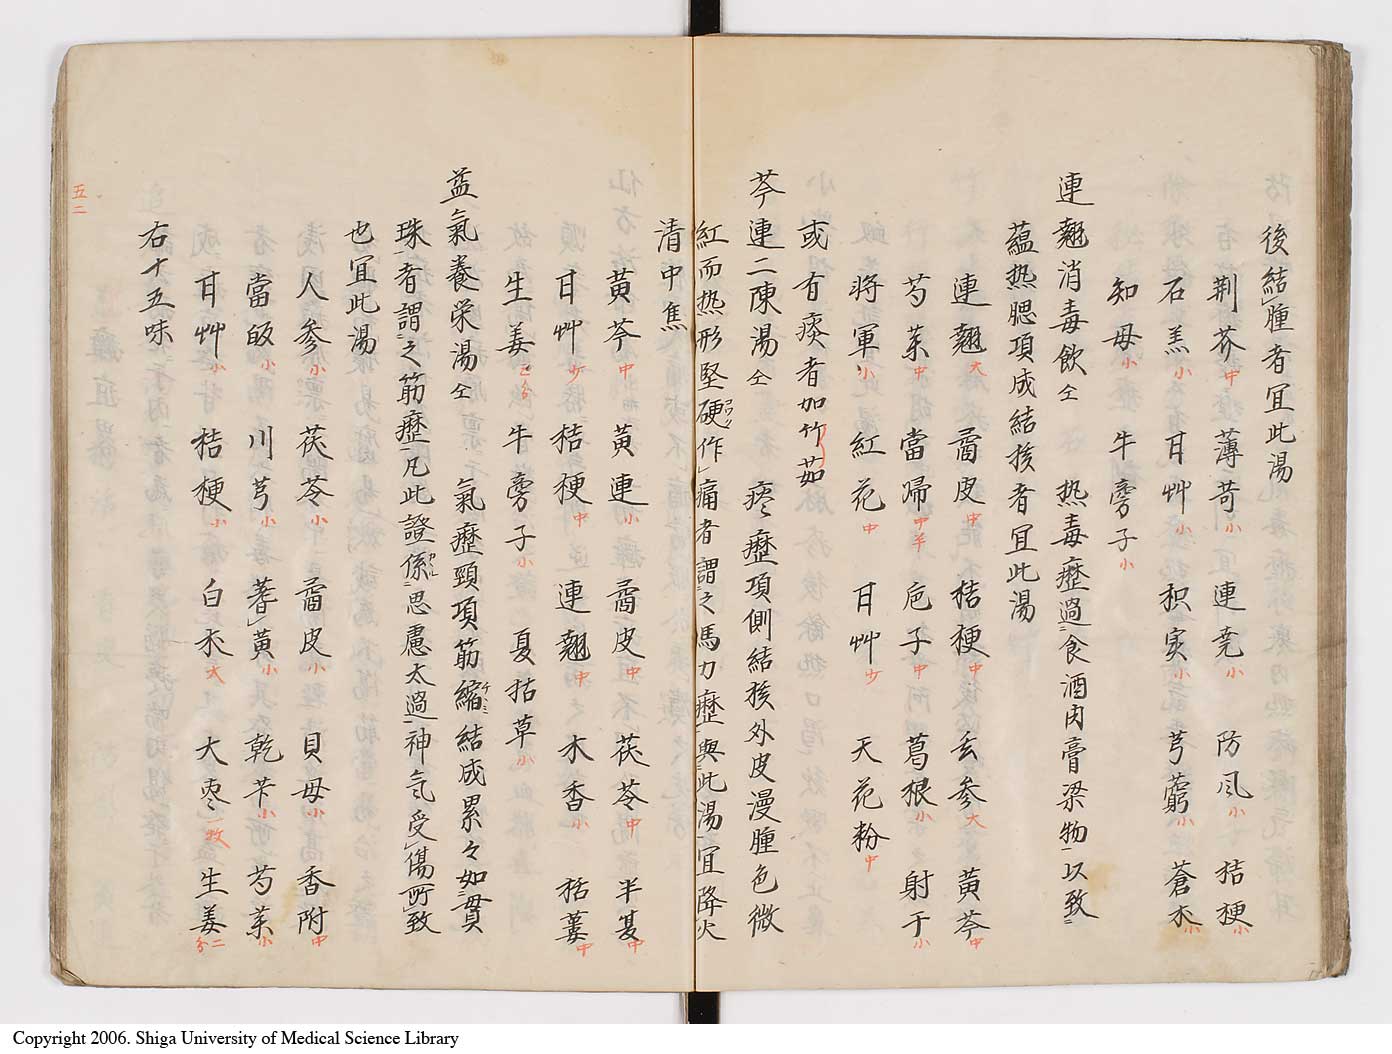 後結腫者宜此湯
荆芥中 薄苛小 連尭小 防风小 桔梗小
石羔小 甘艸小 枳実小 芎藭小 蒼朮小
知母小 牛旁子小
連翹消毒飲仝 热毒癧過食酒肉膏梁物以致
蘊热腮項成結核者宜此湯
連翹大 橘皮中 桔梗中 玄参大 黄芩中
芍薬中 當帰中半 梔子中 葛根小 射干小
将軍小 紅花中 甘艸少 天花粉中
或有痰者加竹茹
芩連二陳湯仝 痰癧項側結核外皮漫腫色微
紅而热形堅硬作痛者謂之馬刀癧與此湯宜降火
清中焦
黄芩中 黄連小 橘皮中 茯苓中 半夏中
甘艸少 桔梗中 連翹中 木香小 栝蔞中
生姜三分 牛旁子小 夏枯草小
益氣養栄湯仝 氣癧頸項筋縮結成累々如貫
珠者謂之筋癧凡此證係思慮太過神気受傷所致
也宜此湯
人参小 茯苓小 橘皮小 貝母小 香附中
當皈小 川芎小 蓍黄小 乾芐小 芍薬小
甘艸小 桔梗小 白朮大 大枣一枚 生姜二分
右十五味
五二
Copyright 2006. Shiga University of Medical Science Library